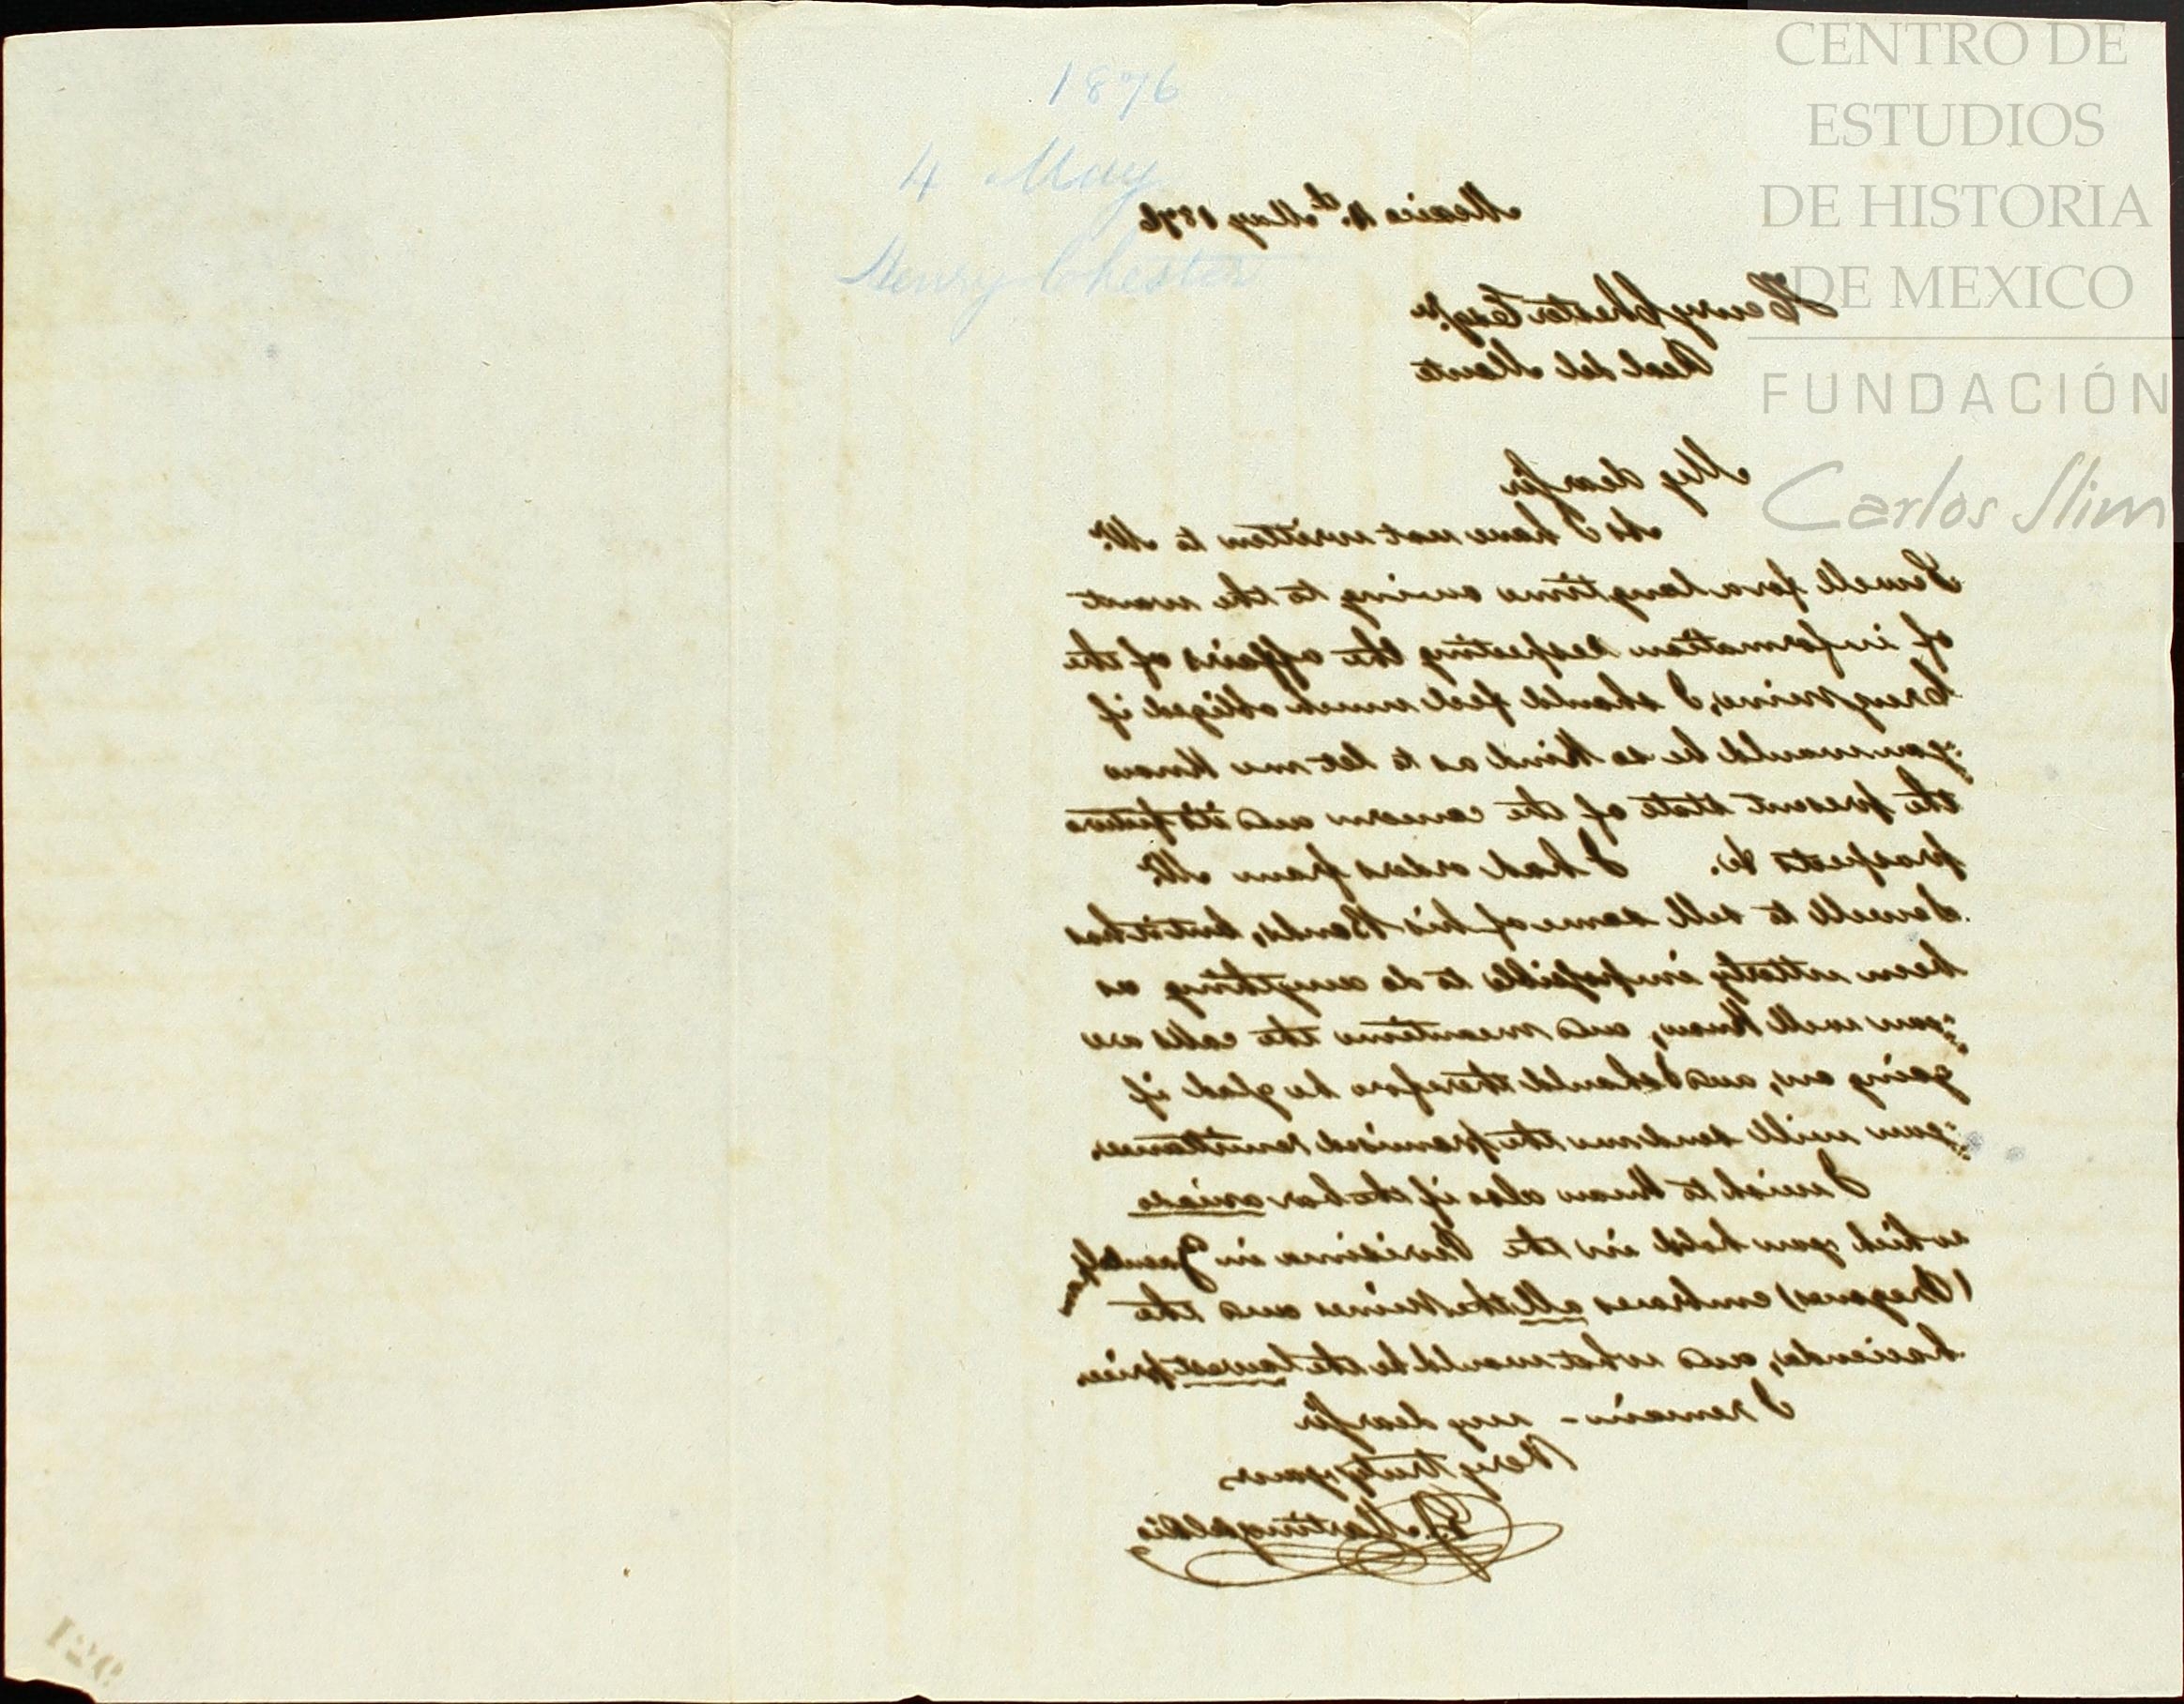 1876
4 May
Henry Chester
Mexico 4th May 1876
Henry Chester Esqre
Real del Monte
My dear Sir
As I have not written to Mr.
Jewell for a long time owing to the want
of information respecting the affairs of the
mine, I should feel much obliged if
you would be so kind as to let me know
the present state of the concern and its future
prospects &c. I had orders from Mr.
Jewell to sell some of his Bonds, but it has
been utterly impossible to do anything as
you well know, and meantime the calls are
going on, and I should therefore be glad if
you will send me the promised remittance.
I wish to know also if the bar aviado
which you hold in the Purisima in
(Oregones) embraces all the mines and the
hacienda, and what would be the lowest price.
I remain - my dear Sir
Very truly yours
CENTRO DE
ESTUDIOS
DE HISTORIA
DE MEXICO
FUNDACIÓN
Carlos Slim